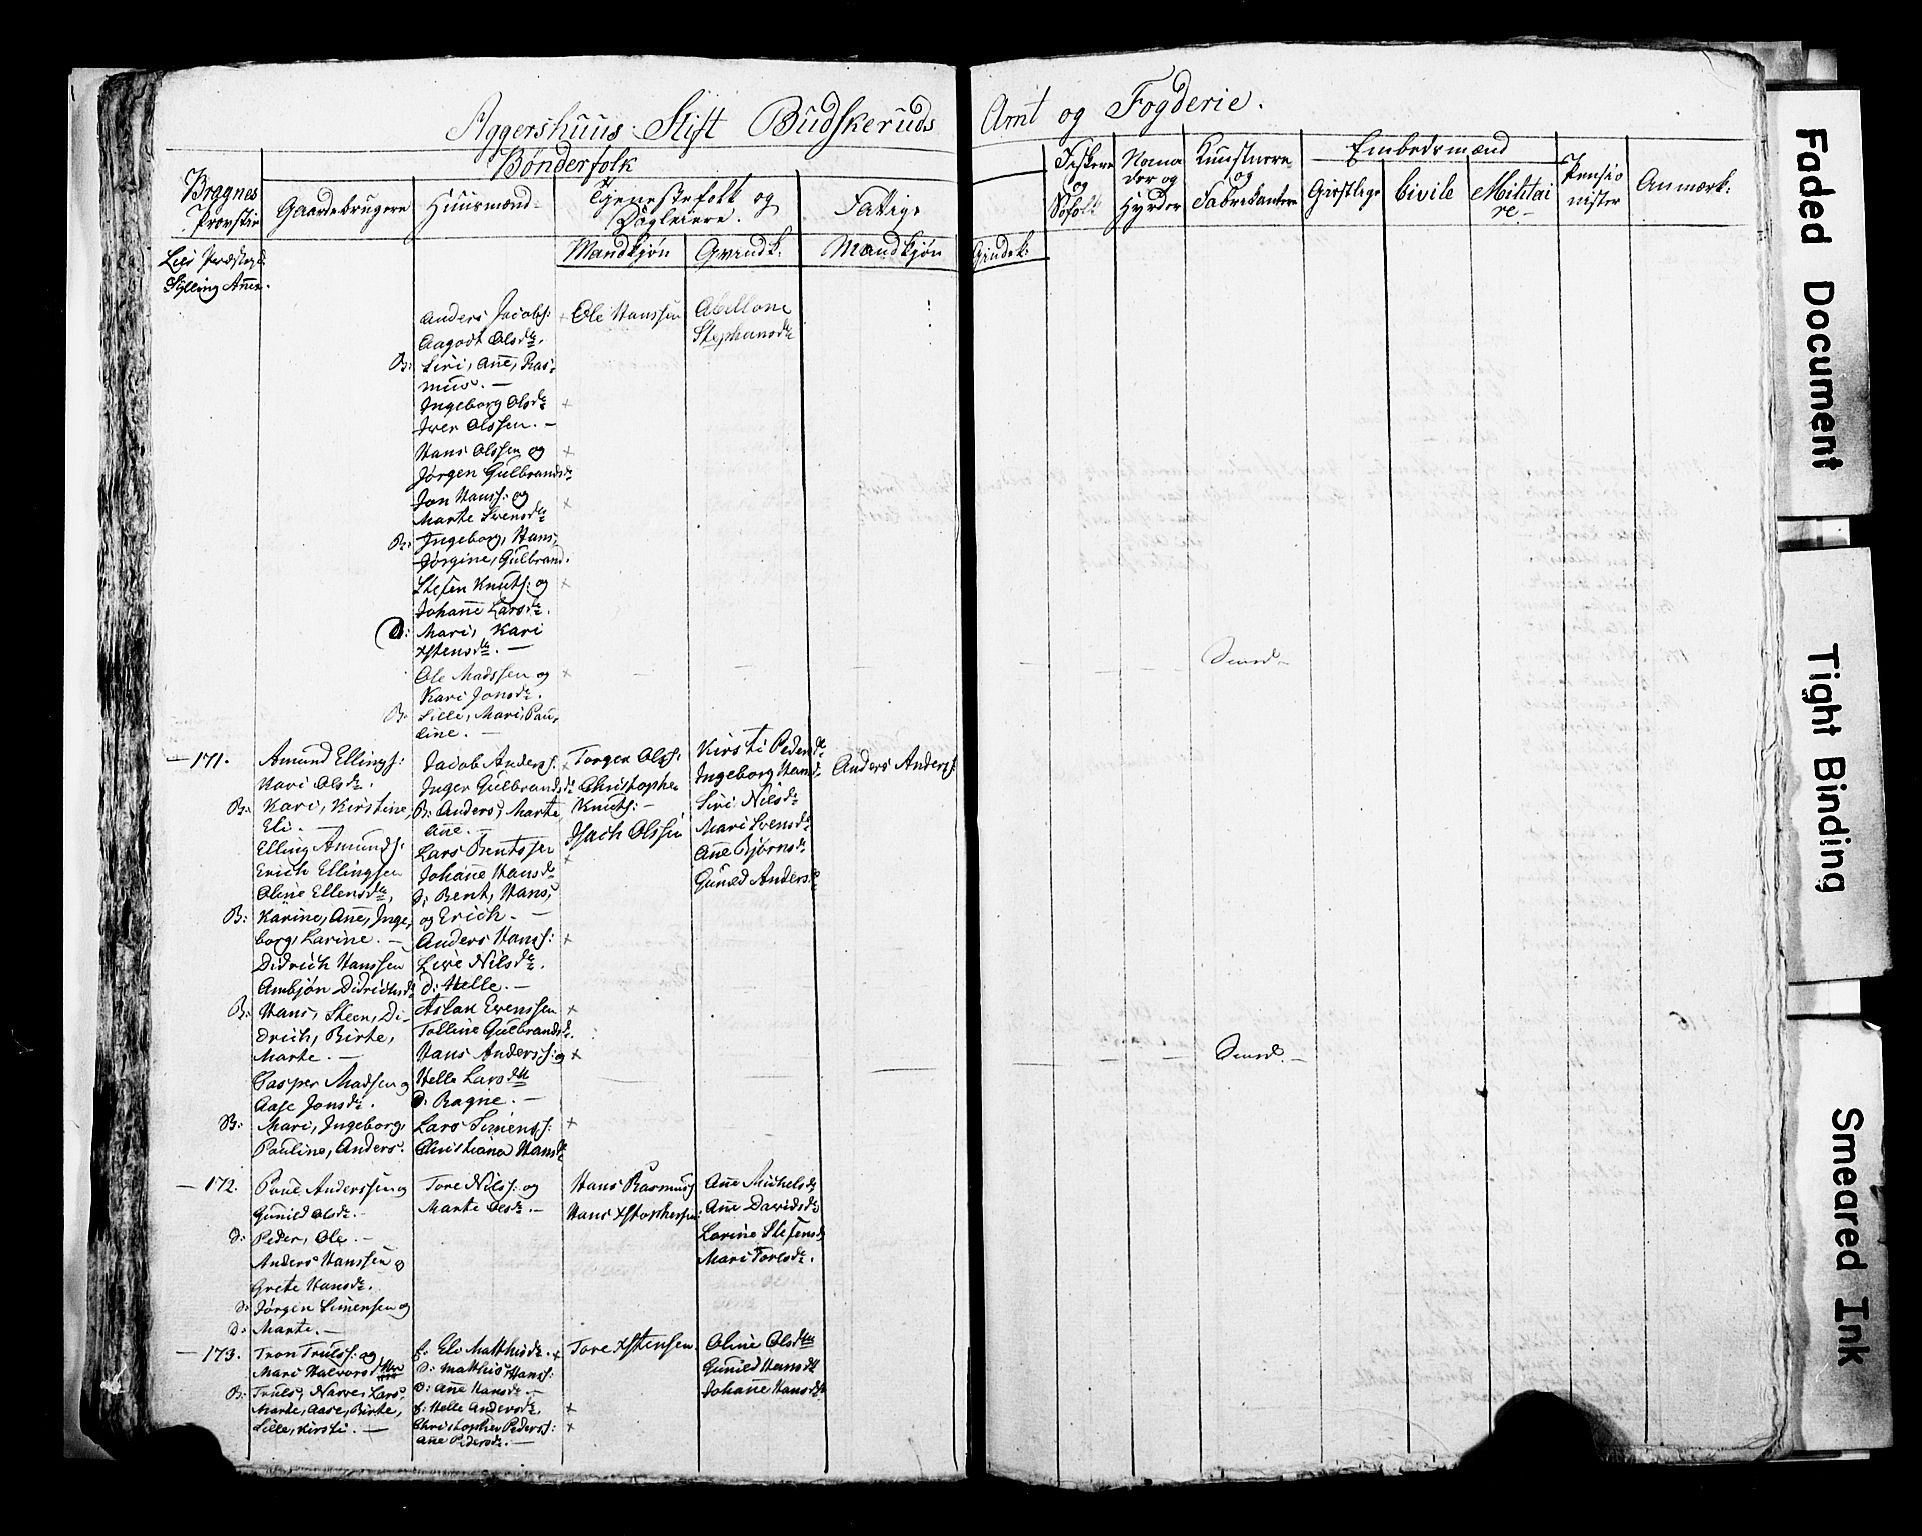 Aggershuus Stift Budskeruds Amt og Fogderie.
Bragnes Provstie
Bønderfolk
Gaardebrugere
Huusmænd
Tjenestefolk og Dagleiere.
Fattige
Mandkjøn
Qvindk:
Mandkjøn
Qvindk:
Fiskere og Søfolk
Noma der og Hyrder
Kunstnere og Fabrikantere
Embedsmænd
Gieistlige
Civile
Militai re
Pensio nister
Anmærk:
Lier Præsteg:
Sylling Anex.
Anders Jacobs:
Aagodt Olsdr.
B: Siri, Ane, Ras-
mus. —
Ingeborg Olsdr
Iver Olssen. —
Hans Olssen og
Jørgen Gulbrandsdr
Jon Hanss: og
Marte Svensdr
B: Ingeborg, Hans,
Jørgine, Gulbrand.
Stefen Knuts: og
Johane Larsdr.
D: Mari, Kari
Xstensdr. —
Ole Madssen og
Kari Jonsdr.
B: Sille, Mari, Pau-
line. —
Ole Hanssen
Abellone
Stephansdr
— 171.
Amund Ellings:
Kari Olsdr.
B: Kari, Kirstine,
Eli. —
Elling Amunds:
Erich Ellingsen
Oline Ellensdr,
B: Karine, Ane, Inge-
borg, Larine. —
Didrich Hanssen
Ambjön Didrichsdr
B: Hans, Steen, Di-
drich, Birte,
Marte. —
Casper Madsen og
Aase Jonsdr.
B: Mari, Ingeborg,
Pauline, Anders.
Jacob Anders:
Inger Gulbrandsdr
B: Anders, Marte,
Ane. —
Lars Bentssen
Johane Hansdr
D: Bent, Hans,
og Erich. —
Anders Hanss:
Live Nilsdr.
D: Helle. —
Aslak Evenssen
Tolline Gulbrandsdr.
Hans Anderss: og
Helle Larsdtr
D: Ragne. —
Lars Simenss:
Christiana Hansdr
Torger Olss:
Christopher
Knuts: —
Isach Olssen
Kirsti Pedersdr
Ingeborg Hansdr
Siri Nilsdr
Mari Svensdr
Ane Bjørnsdr
Gunild Andersdr
Anders Anderss:
— 172.
Poul Anderssen og
Gunild Olsdr. —
D: Peder, Ole. —
Anders Hanssen og
Grete Hansdr.
D: Jörgen Simensen og
D: Marte. —
Tore Nilss: og
Marte Olsdr. —
Hans Rasmuss
Hans Xstophersen
Ane Michelsdr
Ane Davidsdr
Larine Stefensdr
Mari Toresdr.
— 173.
Tron Truls: og
Mari Halvorsdtter
B: Truls, Narve, Lars,
Marte, Aase, Birte,
Sille, Kirsti. —
f: Eli Mathisdr.
D: Mathis Hanss:
D: Ane Hansdr. —
f: Helle Andersdr.
Christopher Peders:
Ane Pedersdr. —
Tore Xstensen
Oline Olsdtr
Gunild Hansdtr
Johane Hansdtr
Faded Document
Tight Binding
Smeared Ink